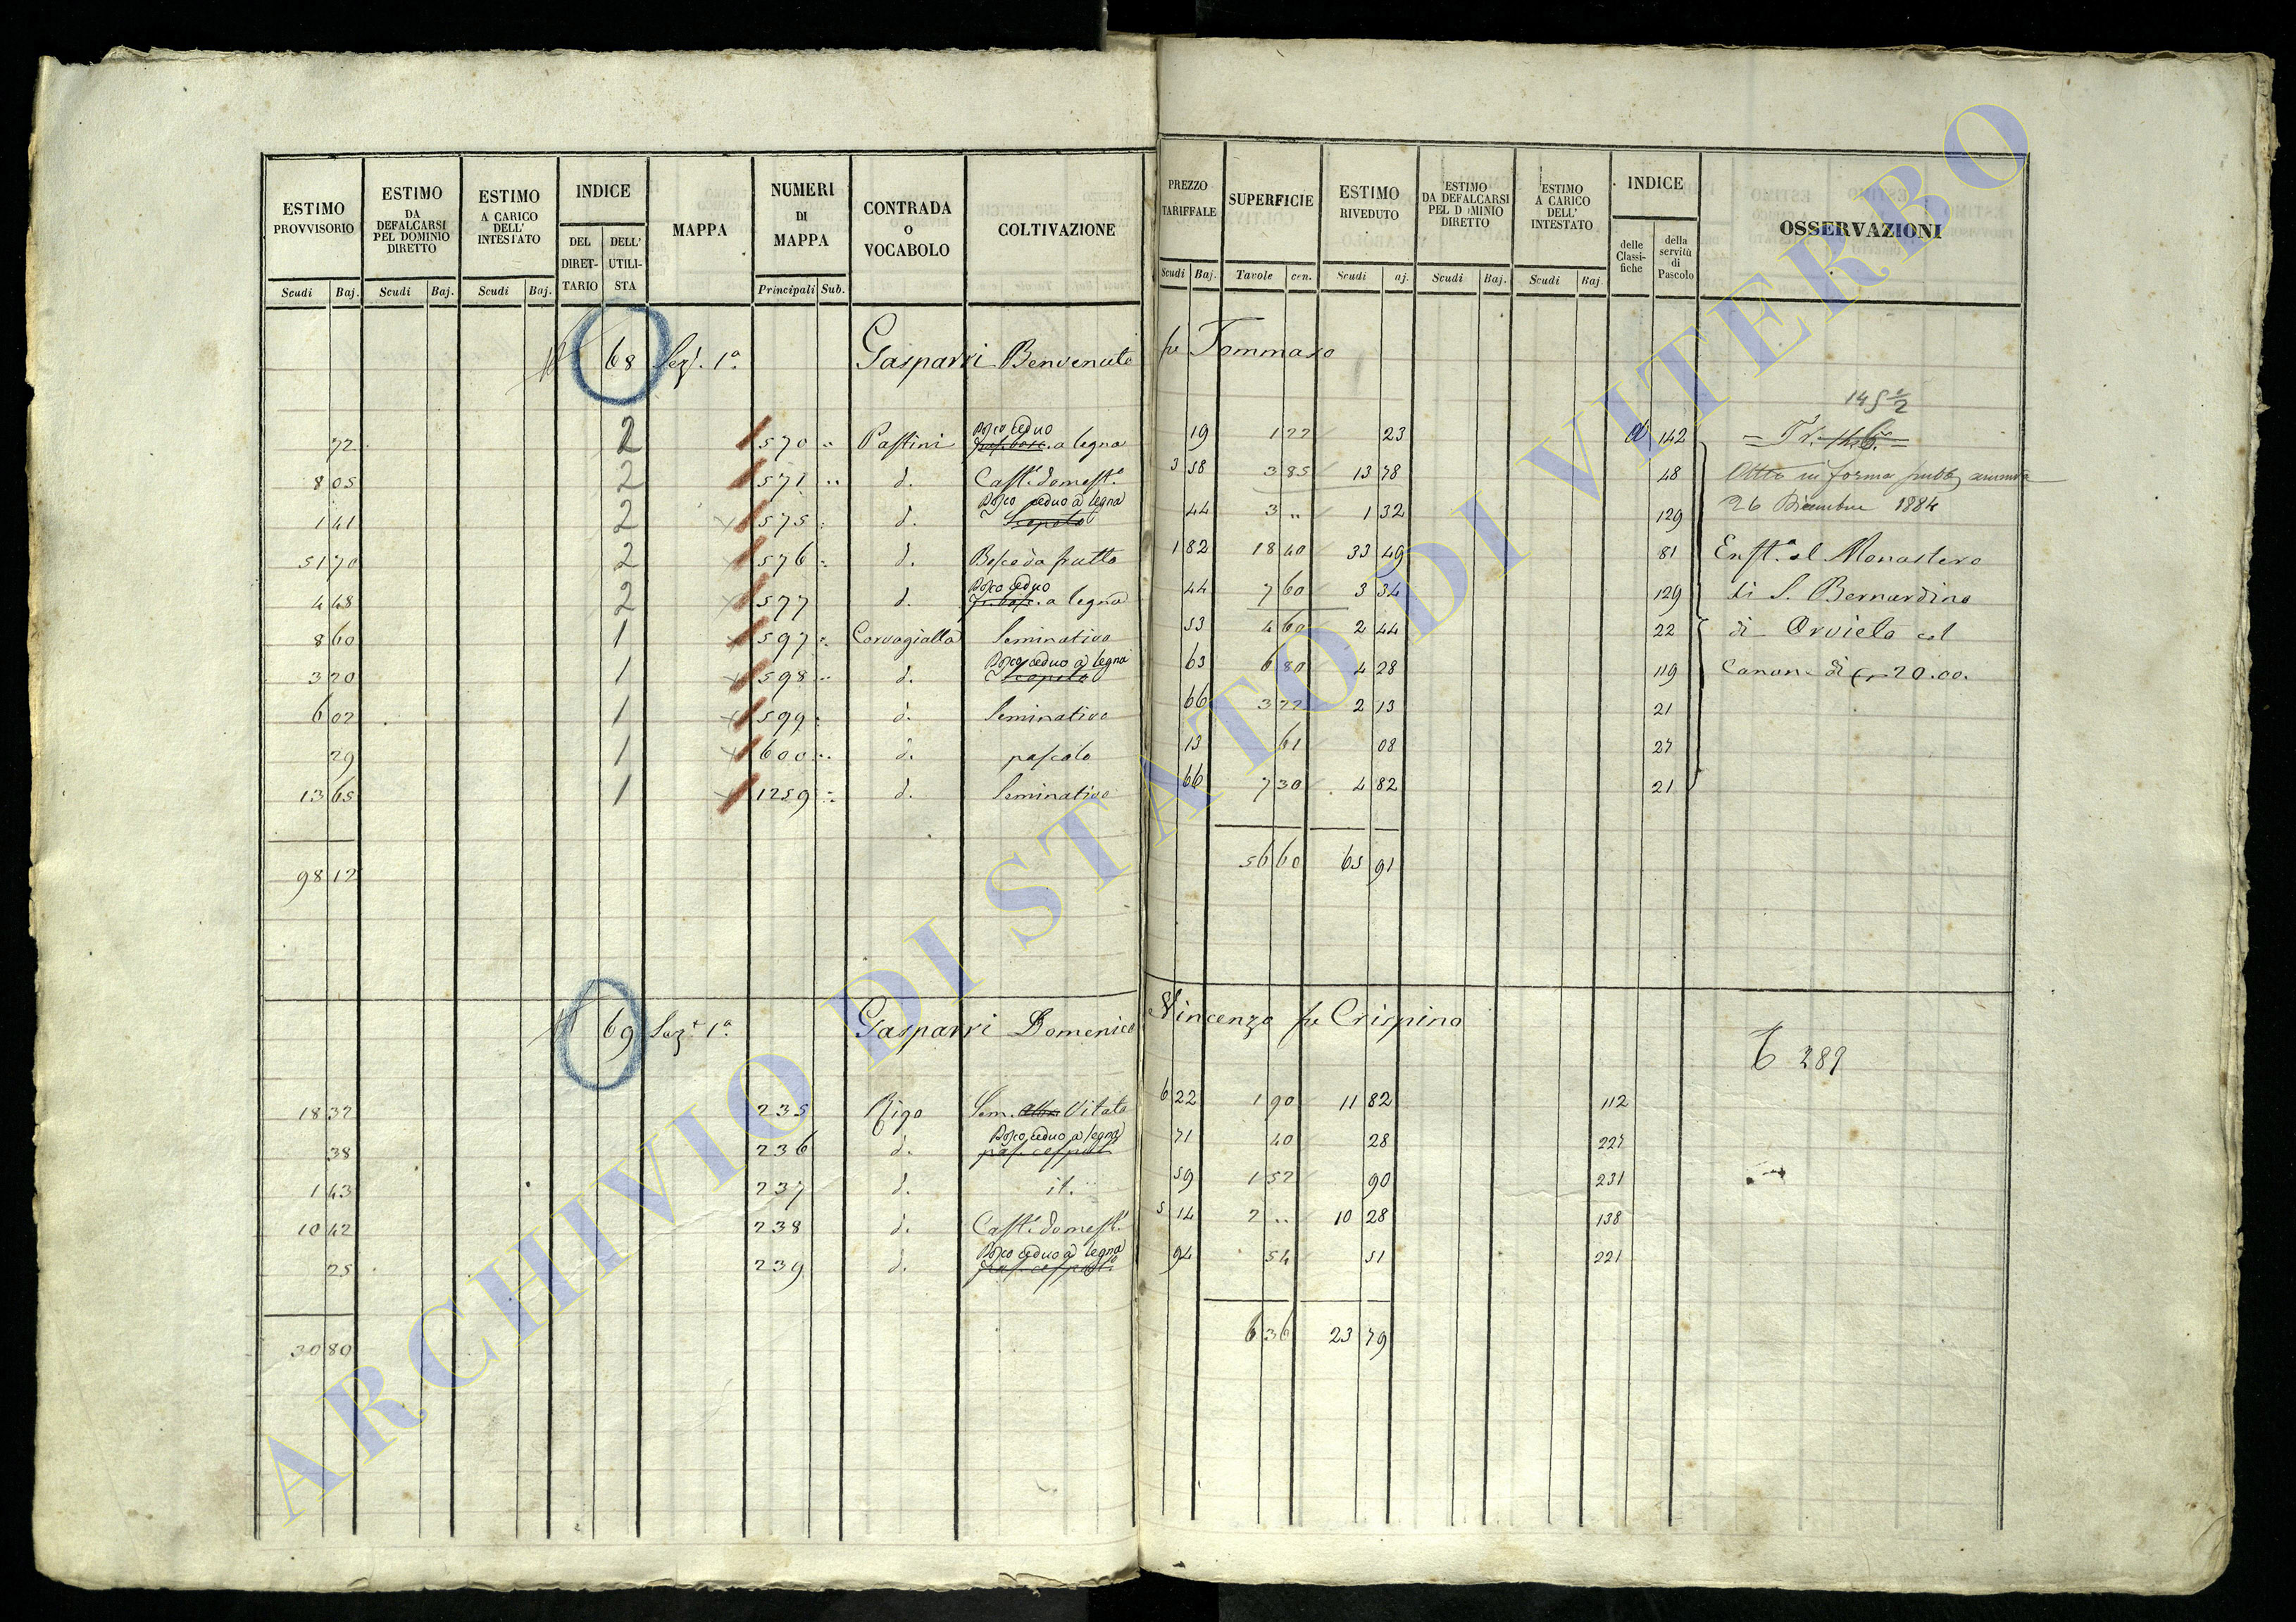 ESTIMO PROVVISORIO | ESTIMO DA DEFALCARSI PEL DOMINIO DIRETTO | ESTIMO A CARICO DELL' INTESTATO | INDICE | MAPPA | NUMERI DI MAPPA | CONTRADA O VOCABOLO | COLTIVAZIONE | PREZZO TARIFFALE | SUPERFICIE | ESTIMO RIVEDUTO | ESTIMO DA DEFALCARSI PEL D MINIO DIRETTO | ESTIMO A CARICO DELL' INTESTATO | INDICE | OSSERVAZIONI
DEL DIRETTARIO | DELL' UTILISTA | delle Classifiche | della servitù di Pascolo
Scudi | Baj. | Scudi | Baj. | Scudi | Baj. | Principali | Sub. | Scudi | Baj. | Tavole | cen. | Scudi | aj. | Scudi | Baj. | Scudi | Baj
68 Sez. 1ª Gasparri Benvenuto fu Tommaso
145 1/2
72 2 570 " Pastini Bosco ceduo a legna 19 1 22 23 142
8 05 2 571 " d. Cast.º domest.º 3 58 3 85 13 78 48 Atto in forma pubb
1 41 2 575 d. Bosco ceduo a legna 44 3 " 1 32 129 26 Dicembre 1884
51 70 2 576 d. Bosco da frutto 1 82 18 40 33 49 81 Enft.ª al Monastero
4 48 2 577 d. Bosco ceduo a legna 44 7 60 3 34 129 di S. Bernardino
8 60 1 597 Corvogialla Seminativo 53 4 60 2 44 22 di Orvieto col
3 20 1 598 d. Bosco ceduo a legna 63 6 80 4 28 119 Canone di 20.00.
6 02 1 599 d. Seminativo 66 3 22 2 13 21
29 1 600 d. pascolo 13 61 08 27
13 65 1 1259 d. Seminativo 66 7 30 4 82 21
98 12 56 60 65 91
69 Sez.e 1ª Gasparri Domenico Vincenzo fu Crispino
289
18 32 235 Rigo Sem. Vitato 6 22 1 90 11 82 112
38 236 d. Bosco ceduo a legna 71 40 28 227
1 43 237 d. it. 59 1 52 90 231
10 42 238 d. Cast.º domest.º 5 14 2 " 10 28 138
25 239 d. Bosco ceduo a legna 94 54 51 221
30 80 6 36 23 79
ARCHIVIO DI STATO DI VITERBO